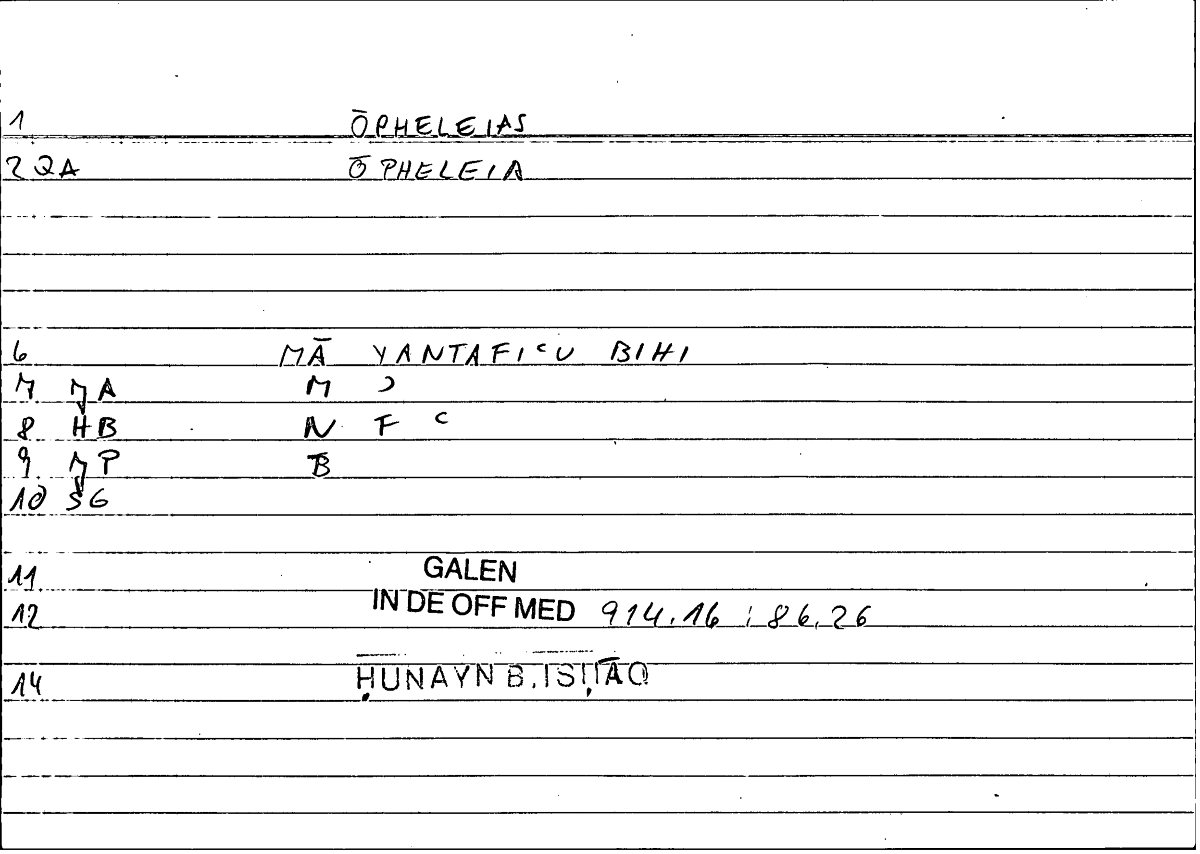 1 ŌPHELEIAS
2 QA ŌPHELEIA
6 MĀ YANTAFIʿU BIHI
7 JA M ʾ
8 HB N F ʿ
9 JP B
10 SG
11 GALEN
12 IN DE OFF MED 914.16 ; 86,26
14 ḤUNAYN B. ISḤĀQ